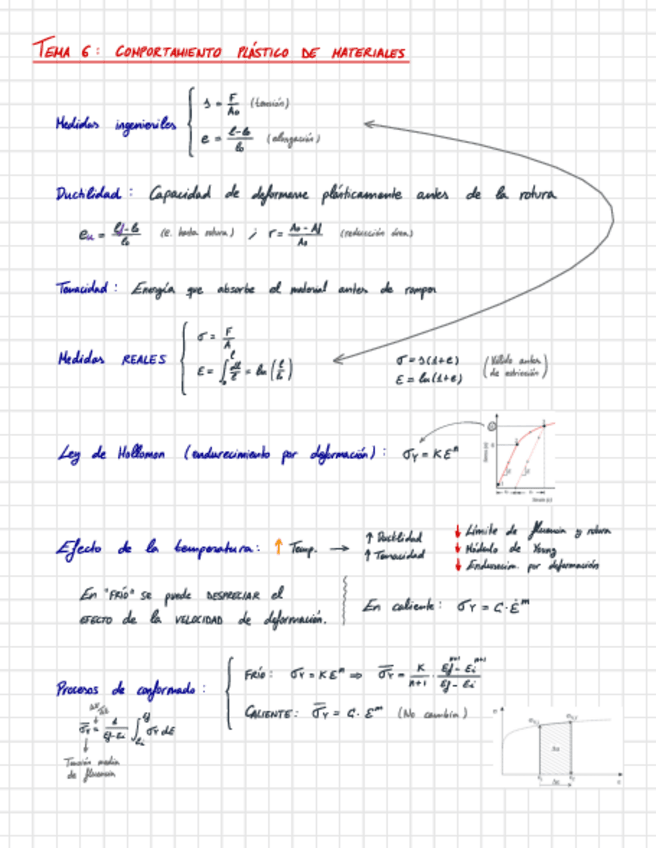 TEMA 6: COMPORTAMIENTO PLÁSTICO DE MATERIALES
Medidas ingenieriles { s = F/A₀ (tensión)
e = (l-l₀)/l₀ (elongación)
Ductilidad: Capacidad de deformarse plásticamente antes de la rotura
eᵤ = (lf-l₀)/l₀ (e. hasta rotura) ; r = (A₀-Af)/A₀ (reducción área)
Tenacidad: Energía que absorbe el material antes de romper
Medidas REALES { σ = F/A
ε = ∫ dl/l = ln(l/l₀)
σ = s(1+e)
ε = ln(1+e)
(Válido antes
de estricción)
Ley de Hollomon (endurecimiento por deformación): σY = Kεⁿ
Efecto de la temperatura: ↑ Temp. →
↑ Ductilidad
↑ Tenacidad
↓ Límite de fluencia y rotura
↓ Módulo de Young
↓ Endurecim. por deformación
En "FRÍO" SE puede DESPRECIAR el
EFECTO de la VELOCIDAD de deformación.
En caliente: σY = C·ε̇ᵐ
Procesos de conformado: { FRÍO: σY = Kεⁿ ⇒ σ̄Y = K/(n+1) · (εfⁿ⁺¹ - εiⁿ⁺¹)/(εf - εi)
CALIENTE: σ̄Y = C·ε̇ᵐ (No cambia)
σ̄Y = 1/(εf-εi) ∫ σY dε
Tensión media
de fluencia